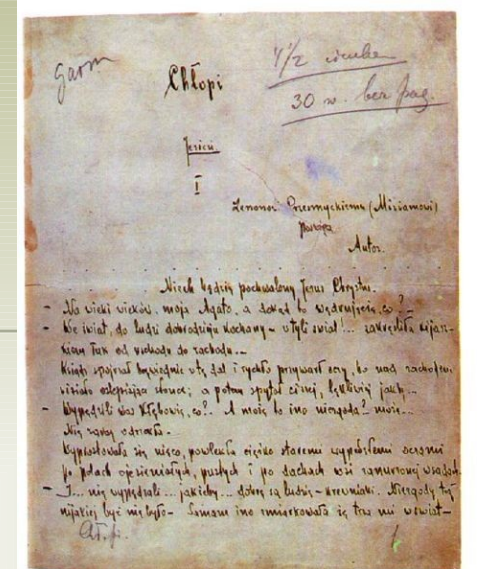 Garm.
Chłopi
30 w. bez pag.
Jesień
I
Zenonowi Przesmyckiemu (Miriamowi)
Autor.
Niech będzie pochwalony Jezus Chrystus.
- Na wieki wieków, moja Agato, a dokąd to wędrujecie, co?
- We świat, do ludzi dobrodzieju kochany – w tyli świat!... zakreśliła kijasz-
kiem łuk od wschodu do zachodu...
Ksiądz spojrzał bezwiednie w tę dal i rychło przywarł oczy, bo nad zachodem
wisiało oślepiające słońce; a potem spytał ciszej, lękliwiej jakby...
- Wypędzili was Kłębowie, co? A może to ino niezgoda? może...
Nie zaraz odrzekła.
Wyprostowała się nieco, powlekła ciężko staremi wypełzłemi oczami
po polach ojesieniałych, pustych i po dachach wsi zanurzonej w sadach.
- I... nie wypędzali... jakżeby... dobre są ludzie – krewniaki. Niezgody też
nijakiej być nie było – Samam ino zmiarkowała że trza mi w świat –